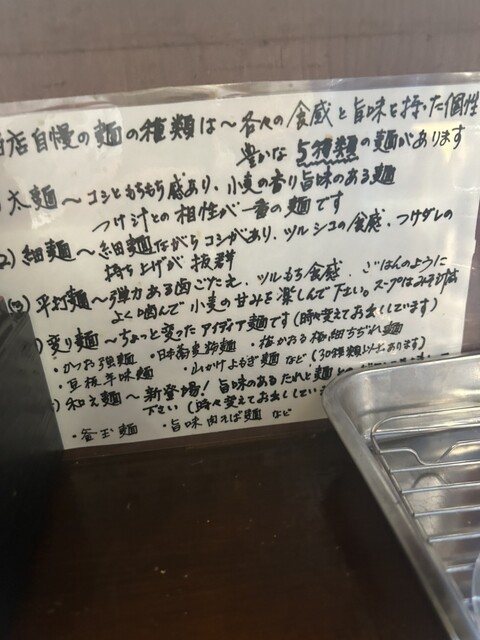 店自慢の麺の種類は～各々の食感と旨味を持った個性
豊かな5種類の麺があります
太麺～コシともちもち感あり、小麦の香り旨味のある麺
つけ汁との相性が一番の麺です
2) 細麺～細麺ながらコシがあり、ツルシコの食感、つけダレの
持ち上げが抜群
(3) 平打麺～弾力ある歯ごたえ、ツルもち食感、ごはんのように
よく噛んで小麦の甘みを楽しんで下さい。スープはみそがお
) 変り麺～ちょっと変ったアイディア麺です(時々変えてお出ししています)
・かつお強麺 ・日本蕎麦粉麺 ・桜かおる極細ちぢれ麺
・豆板辛味麺 ・山かけよもぎ麺 など (30種類以上あります)
) 和え麺～新登場! 旨味のあるたれと麺と
下さい (時々変えてお出ししてい
・釜玉麺 ・旨味肉そば麺 など